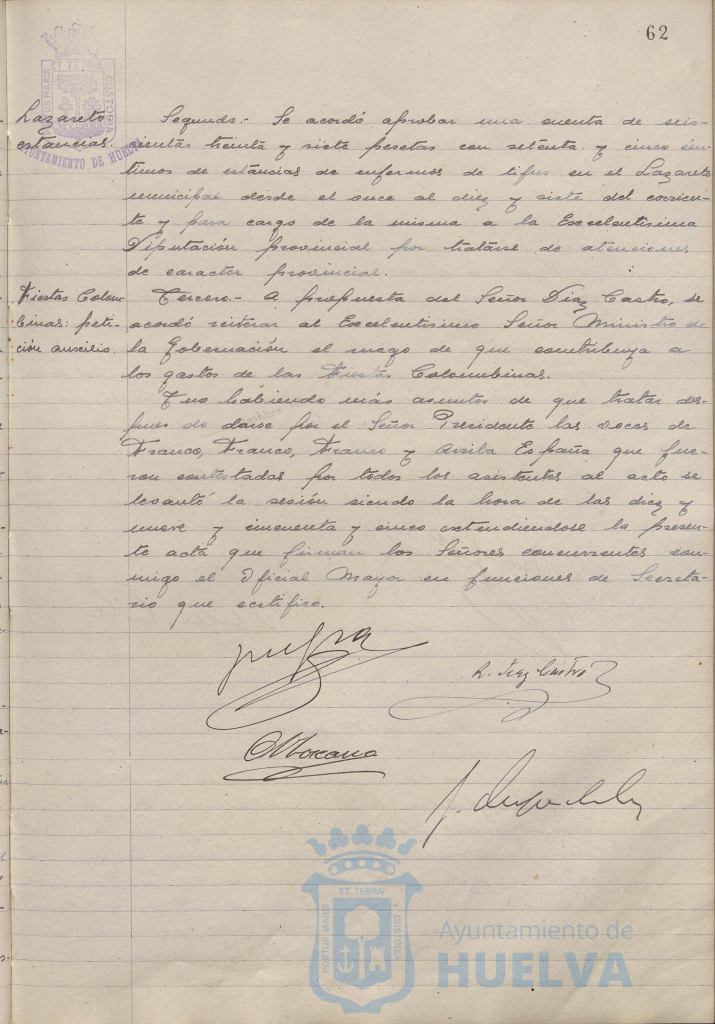 62
ET TERRÆ
PORTUS MARIS
CUSTODIA
AYUNTAMIENTO DE HUELVA
Lazareto
estancias.
Segundo.- Se acordó aprobar una cuenta de seis-
cientas treinta y siete pesetas con setenta y cinco cén-
timos de estancias de enfermos de tifus en el Lazareto
municipal desde el once al diez y siete del corrien-
te y para cargo de la misma a la Excelentísima
Diputación provincial por tratarse de atenciones
de caracter provincial.
Fiestas Colom-
binas: peti-
ción auxilio.
Tercero.- A propuesta del Señor Díaz Castro, se
acordó reiterar al Excelentísimo Señor Ministro de
la Gobernación el ruego de que contribuya a
los gastos de las Fiestas Colombinas.
Y no habiendo más asuntos de que tratar des-
pues de darse por el Señor Presidente las voces de
Franco, Franco, Franco y Arriba España que fue-
ron contestadas por todos los asistentes al acto se
levantó la sesión siendo la hora de las diez y
nueve y cincuenta y cinco extendiendose la presen-
te acta que firman los Señores concurrentes con-
migo el Oficial Mayor en funciones de Secreta-
rio que certifico.
R. Diaz Castro
ET TERRÆ
PORTUS MARIS
CUSTODIA
Ayuntamiento de
HUELVA